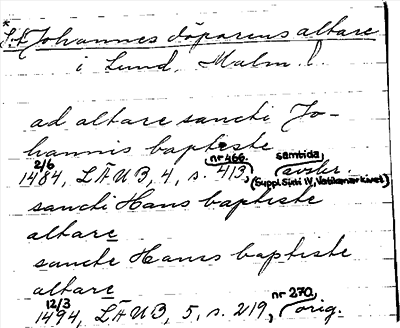 * S:t Johannes döparens altare
i Lund, Malm.l.
ad altare sancti Jo-
hannis baptiste
2/6 1484, LÄUB, 4, s. 413, (nr 466. samtida avskr. (Suppl. Sixti IV, Vatikanarkivet)
sancti Hans baptiste
altare
sancte Hans baptiste
altare
12/3 1494, LÄUB, 5, s. 219, nr 270, orig.